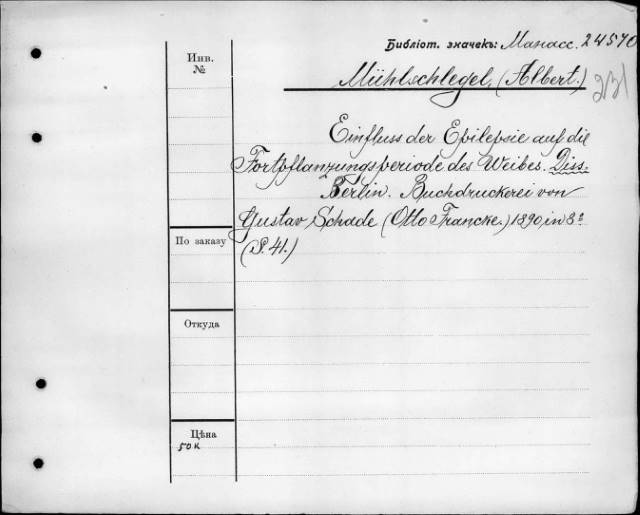 Библіот. значекъ: Манасс. 24570
Инв.
№
Mühlschlegel, (Albert.)
231
Einfluss der Epilepsie auf die
Fortpflanzungsperiode des Weibes. Diss.
Berlin. Buchdruckerei von
Gustav Schade (Otto Francke.) 1890, in 8º
По заказу
(S. 41.)
Откуда
Цѣна
50 к